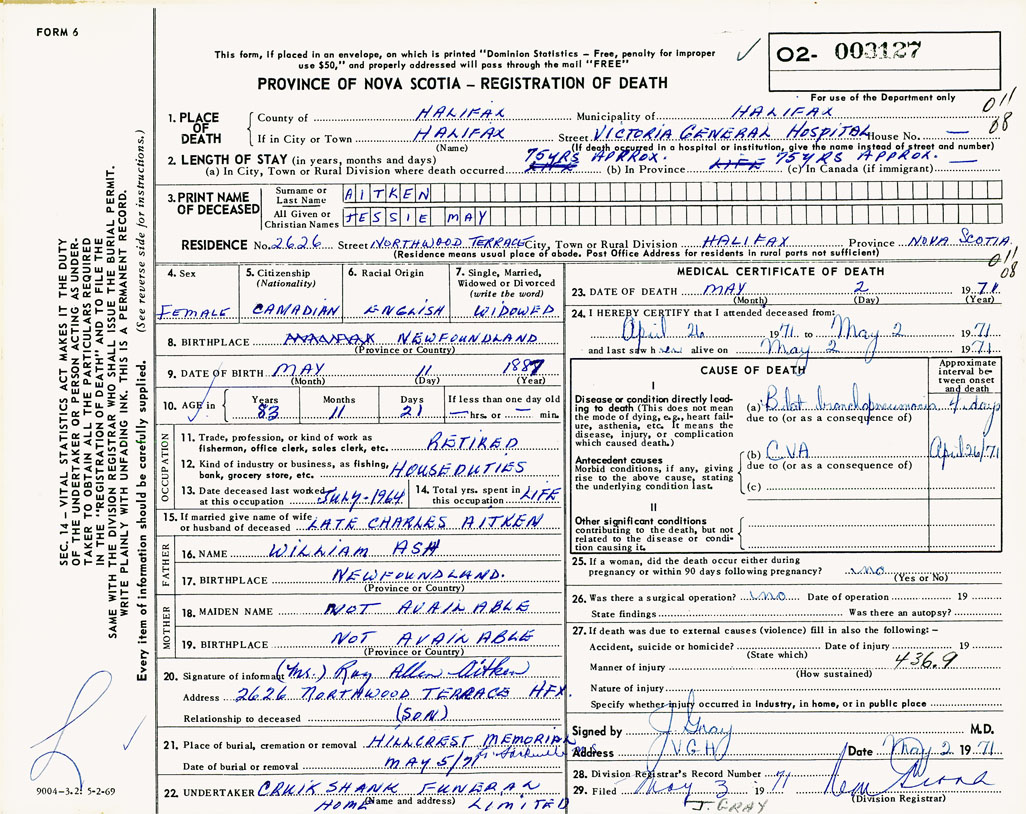 FORM 6
This form, if placed in an envelope, on which is printed "Dominion Statistics – Free, penalty for improper
use $50," and properly addressed will pass through the mail "FREE"
PROVINCE OF NOVA SCOTIA – REGISTRATION OF DEATH
O2- 003127
For use of the Department only
011
08
1. PLACE OF DEATH
County of HALIFAX Municipality of HALIFAX
If in City or Town HALIFAX Street VICTORIA GENERAL HOSPITAL House No. —
(Name) (If death occurred in a hospital or institution, give the name instead of street and number)
2. LENGTH OF STAY (in years, months and days) 75 YRS APPROX. LIFE 75 YRS APPROX. —
(a) In City, Town or Rural Division where death occurred LIFE (b) In Province (c) In Canada (if immigrant)
3. PRINT NAME OF DECEASED
Surname or Last Name AITKEN
All Given or Christian Names JESSIE MAY
RESIDENCE No. 2626 Street NORTHWOOD TERRACE City, Town or Rural Division HALIFAX Province NOVA SCOTIA
(Residence means usual place of abode. Post Office Address for residents in rural parts not sufficient)
011
08
4. Sex
FEMALE
5. Citizenship
(Nationality)
CANADIAN
6. Racial Origin
ENGLISH
7. Single, Married,
Widowed or Divorced
(write the word)
WIDOWED
8. BIRTHPLACE HALIFAX NEWFOUNDLAND
(Province or Country)
9. DATE OF BIRTH MAY 11 1887
(Month) (Day) (Year)
10. AGE in
Years Months Days If less than one day old
83 11 21 — hrs. or — min.
OCCUPATION
11. Trade, profession, or kind of work as
fisherman, office clerk, sales clerk, etc. RETIRED
12. Kind of industry or business, as fishing,
bank, grocery store, etc. HOUSE DUTIES
13. Date deceased last worked
at this occupation JULY-1964
14. Total yrs. spent in
this occupation LIFE
15. If married give name of wife
or husband of deceased LATE CHARLES AITKEN
FATHER
16. NAME WILLIAM ASH
17. BIRTHPLACE NEWFOUNDLAND.
(Province or Country)
MOTHER
18. MAIDEN NAME NOT AVAILABLE
19. BIRTHPLACE NOT AVAILABLE
(Province or Country)
20. Signature of informant (Mr.) Ray Allen Aitken
Address 2626 NORTHWOOD TERRACE HFX.
Relationship to deceased (SON)
21. Place of burial, cremation or removal HILLCREST MEMORIAL
Date of burial or removal MAY 5/71
22. UNDERTAKER CRUIKSHANK FUNERAL
(Name and address)
HOME LIMITED
MEDICAL CERTIFICATE OF DEATH
23. DATE OF DEATH MAY 2 1971.
(Month) (Day) (Year)
24. I HEREBY CERTIFY that I attended deceased from:
April 26 1971 to May 2 1971
and last saw her alive on May 2 1971
CAUSE OF DEATH
Approximate
interval be-
tween onset
and death
I
Disease or condition directly lead-
ing to death (This does not mean
the mode of dying, e.g., heart fail-
ure, asthenia, etc. It means the
disease, injury, or complication
which caused death.)
(a) Bilat bronchopneumonia 4 days
due to (or as a consequence of)
Antecedent causes
Morbid conditions, if any, giving
rise to the above cause, stating
the underlying condition last.
(b) CVA April 26/71
due to (or as a consequence of)
(c)
II
Other significant conditions
contributing to the death, but not
related to the disease or condi-
tion causing it.
25. If a woman, did the death occur either during
pregnancy or within 90 days following pregnancy? no
(Yes or No)
26. Was there a surgical operation? no Date of operation 19
State findings Was there an autopsy?
27. If death was due to external causes (violence) fill in also the following: –
Accident, suicide or homicide? Date of injury 19
(State which)
436.9
Manner of injury
(How sustained)
Nature of injury
Specify whether injury occurred in industry, in home, or in public place
Signed by J Gray M.D.
Address V.G.H Date May 2 1971
28. Division Registrar's Record Number 71
29. Filed May 3 1971
(Division Registrar)
J. GRAY
SEC. 14 – VITAL STATISTICS ACT MAKES IT THE DUTY
OF THE UNDERTAKER OR PERSON ACTING AS UNDER-
TAKER TO OBTAIN ALL THE PARTICULARS REQUIRED
IN THE "REGISTRATION OF DEATH" AND TO FILE THE
SAME WITH THE DIVISION REGISTRAR WHO SHALL ISSUE THE BURIAL PERMIT.
WRITE PLAINLY WITH UNFADING INK. THIS IS A PERMANENT RECORD.
Every item of information should be carefully supplied. (See reverse side for instructions.)
9004-3.2: 5-2-69